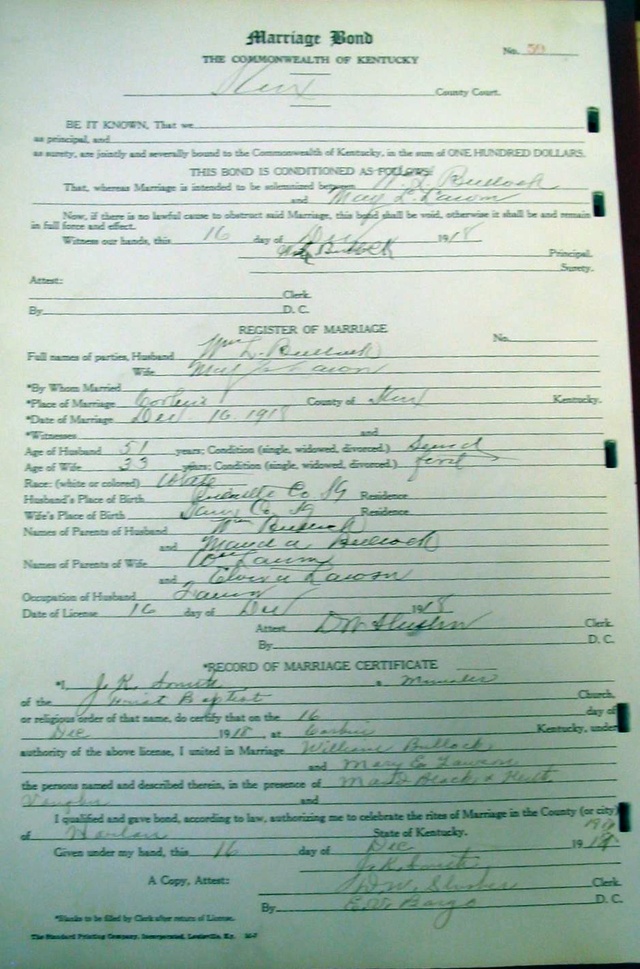 Marriage Bond
No. 50
THE COMMONWEALTH OF KENTUCKY
Knox County Court.
BE IT KNOWN, That we
as principal, and
as surety, are jointly and severally bound to the Commonwealth of Kentucky, in the sum of ONE HUNDRED DOLLARS.
THIS BOND IS CONDITIONED AS FOLLOWS:
That, whereas Marriage is intended to be solemnized between W. L. Bullock
and May L. Lawson
Now, if there is no lawful cause to obstruct said Marriage, this bond shall be void, otherwise it shall be and remain
in full force and effect.
Witness our hands, this 16 day of Dec 1918
Bullock Principal.
Surety.
Attest:
Clerk.
By D. C.
REGISTER OF MARRIAGE
No.
Full names of parties, Husband Wm L. Bullock
Wife May Lawson
*By Whom Married
*Place of Marriage Corbin County of Knox Kentucky.
*Date of Marriage Dec 16. 1918
*Witnesses and
Age of Husband 51 years; Condition (single, widowed, divorced.) Second
Age of Wife 33 years; Condition (single, widowed, divorced.) first
Race: (white or colored) White
Husband's Place of Birth Co. Ky Residence
Wife's Place of Birth Co. Ky Residence
Names of Parents of Husband Wm Bullock
and Bullock
Names of Parents of Wife Wm Lawson
and Lawson
Occupation of Husband
Date of License 16 day of Dec 1918
Attest Clerk.
By D. C.
*RECORD OF MARRIAGE CERTIFICATE
*I, J. K. Smith a Minister
of the First Baptist Church,
or religious order of that name, do certify that on the 16 day of
Dec 1918, at Corbin Kentucky, under
authority of the above license, I united in Marriage William Bullock
and Mary E Lawson
the persons named and described therein, in the presence of Black &
Vaughn and
I qualified and gave bond, according to law, authorizing me to celebrate the rites of Marriage in the County (or city)
of Harlan State of Kentucky.
Given under my hand, this 16 day of Dec 19
J. K. Smith
A Copy, Attest: Clerk.
By D. C.
*Blanks to be filled by Clerk after return of License.
The Standard Printing Company, Incorporated, Louisville, Ky.